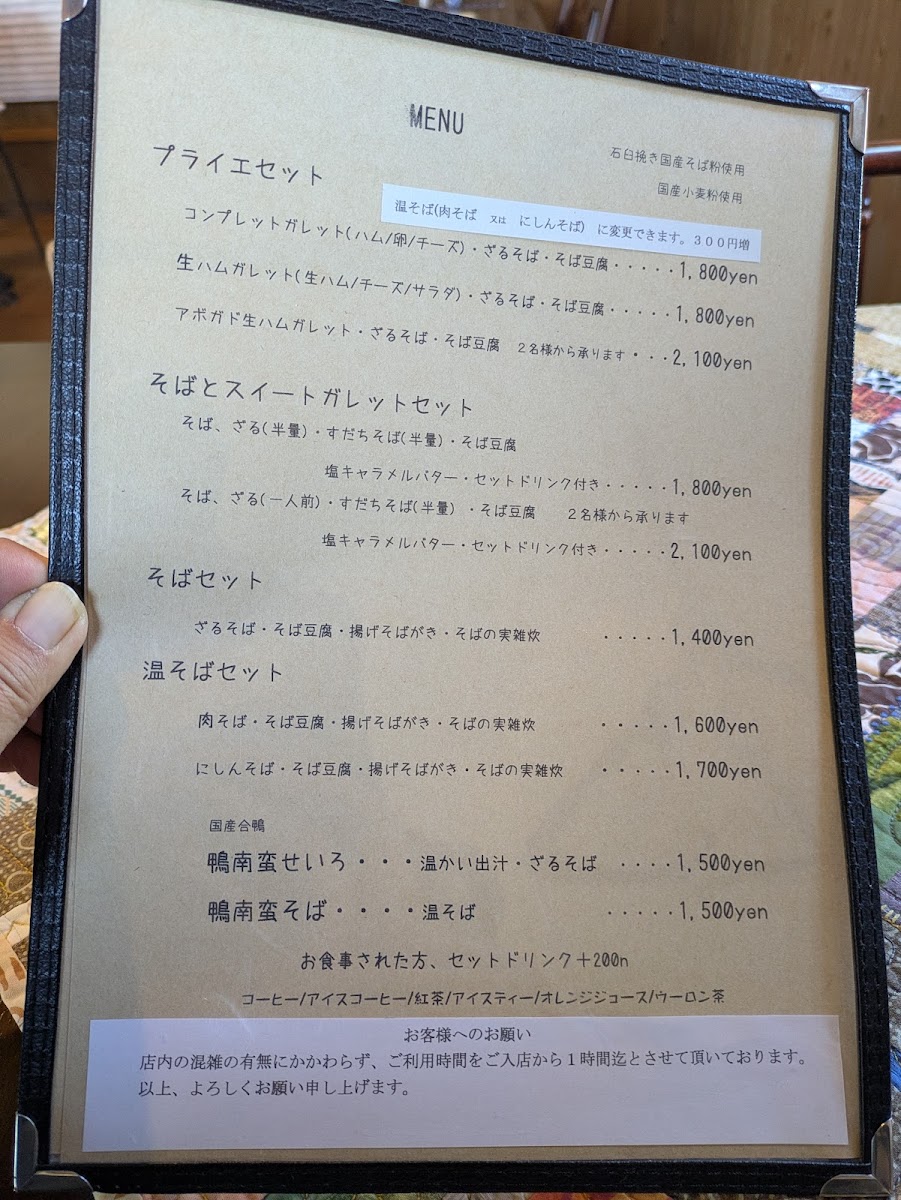 MENU
石臼挽き国産そば粉使用
国産小麦粉使用
プライエセット
温そば(肉そば 又は にしんそば) に変更できます。３００円増
コンプレットガレット(ハム/卵/チーズ)・ざるそば・そば豆腐・・・・・1,800yen
生ハムガレット(生ハム/チーズ/サラダ)・ざるそば・そば豆腐・・・・・1,800yen
アボガド生ハムガレット・ざるそば・そば豆腐 ２名様から承ります・・・2,100yen
そばとスイートガレットセット
そば、ざる(半量)・すだちそば(半量)・そば豆腐
塩キャラメルバター・セットドリンク付き・・・・・1,800yen
そば、ざる(一人前)・すだちそば(半量) ・そば豆腐 ２名様から承ります
塩キャラメルバター・セットドリンク付き・・・・・2,100yen
そばセット
ざるそば・そば豆腐・揚げそばがき・そばの実雑炊 ・・・・・1,400yen
温そばセット
肉そば・そば豆腐・揚げそばがき・そばの実雑炊 ・・・・・1,600yen
にしんそば・そば豆腐・揚げそばがき・そばの実雑炊 ・・・・・1,700yen
国産合鴨
鴨南蛮せいろ・・・温かい出汁・ざるそば ・・・・1,500yen
鴨南蛮そば・・・・温そば ・・・・・1,500yen
お食事された方、セットドリンク＋200n
コーヒー/アイスコーヒー/紅茶/アイスティー/オレンジジュース/ウーロン茶
お客様へのお願い
店内の混雑の有無にかかわらず、ご利用時間をご入店から１時間迄とさせて頂いております。
以上、よろしくお願い申し上げます。